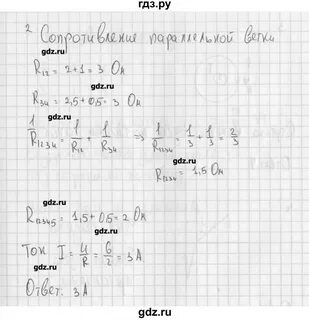 гдз.ру
2 Сопротивление параллельной ветки
gdz.ru
R12 = 2+1 = 3 Ом
gdz.ru
R34 = 2,5+0,5 = 3 Ом
gdz.ru
1/R1234 = 1/R12 + 1/R34 ⇒ 1/R1234 = 1/3 + 1/3 = 2/3
gdz.ru
R1234 = 1,5 Ом
gdz.ru
R12345 = 1,5+0,5 = 2 Ом
gdz.ru
Ток I = U/R = 6/2 = 3 А
gdz.ru
Ответ. 3 А
gdz.ru